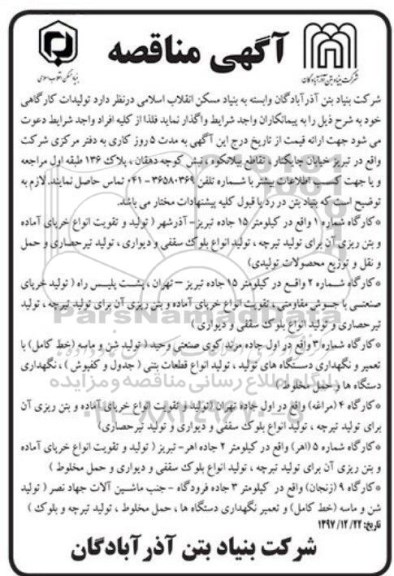 آگهی مناقصه
شرکت بنیاد بتن آذرآبادگان
بنیاد مسکن انقلاب اسلامی
شرکت بنیاد بتن آذرآبادگان وابسته به بنیاد مسکن انقلاب اسلامی درنظر دارد تولیدات کارگاهی
خود به شرح ذیل را به پیمانکاران واجد شرایط واگذار نماید فلذا از کلیه افراد واجد شرایط دعوت
می شود جهت ارائه قیمت از تاریخ درج این آگهی به مدت ۵ روز کاری به دفتر مرکزی شرکت
واقع در تبریز خیابان جایکنار، تقاطع بیلانکوه، نبش کوچه دهقان، پلاک ۱۳۶ طبقه اول مراجعه
و یا جهت کسب اطلاعات بیشتر با شماره تلفن ۳۶۵۸۰۳۶۹-۰۴۱ تماس حاصل نمایند. لازم به
توضیح است که بنیاد بتن در رد یا قبول کلیه پیشنهادات مختار می باشد.
*کارگاه شماره ۱ واقع در کیلومتر ۱۵ جاده تبریز- آذرشهر ( تولید و تقویت انواع خرپای آماده
و بتن ریزی آن برای تولید تیرچه ، تولید انواع بلوک سقفی و دیواری ، تولید تیرحصاری و حمل
و نقل و توزیع محصولات تولیدی)
*کارگاه شماره ۲ واقع در کیلومتر ۱۵ جاده تبریز – تهران ، پشت پلیس راه ( تولید خرپای
صنعتی با جوش مقاومتی ، تقویت انواع خرپای آماده و بتن ریزی آن برای تولید تیرچه ، تولید
تیرحصاری و تولید انواع بلوک سقفی و دیواری )
*کارگاه شماره ۳ واقع در اول جاده مرند کوی صنعتی وحید ( تولید شن و ماسه (خط کامل) با
تعمیر و نگهداری دستگاه های تولید ، تولید انواع قطعات بتنی ( جدول و کفپوش ) ، نگهداری
دستگاه ها و حمل مخلوط )
*کارگاه ۴ (مراغه) واقع در اول جاده تهران (تولید و تقویت انواع خرپای آماده و بتن ریزی آن
برای تولید تیرچه ، تولید انواع بلوک سقفی و دیواری و تولید تیرحصاری)
*کارگاه شماره ۵ (اهر) واقع در کیلومتر ۲ جاده اهر- تبریز ( تولید و تقویت انواع خرپای آماده
و بتن ریزی آن برای تولید تیرچه ، تولید انواع بلوک سقفی و دیواری و حمل مخلوط )
*کارگاه ۹ (زنجان) واقع در کیلومتر ۳ جاده فرودگاه - جنب ماشین آلات جهاد نصر ( تولید
شن و ماسه (خط کامل) و تعمیر نگهداری دستگاه ها ، حمل مخلوط ، تولید تیرچه و بلوک )
تاریخ: ۱۳۹۷/۱۲/۲۲
شرکت بنیاد بتن آذرآبادگان
ParsNamadData
پایگاه اطلاع رسانی مناقصه و مزایده